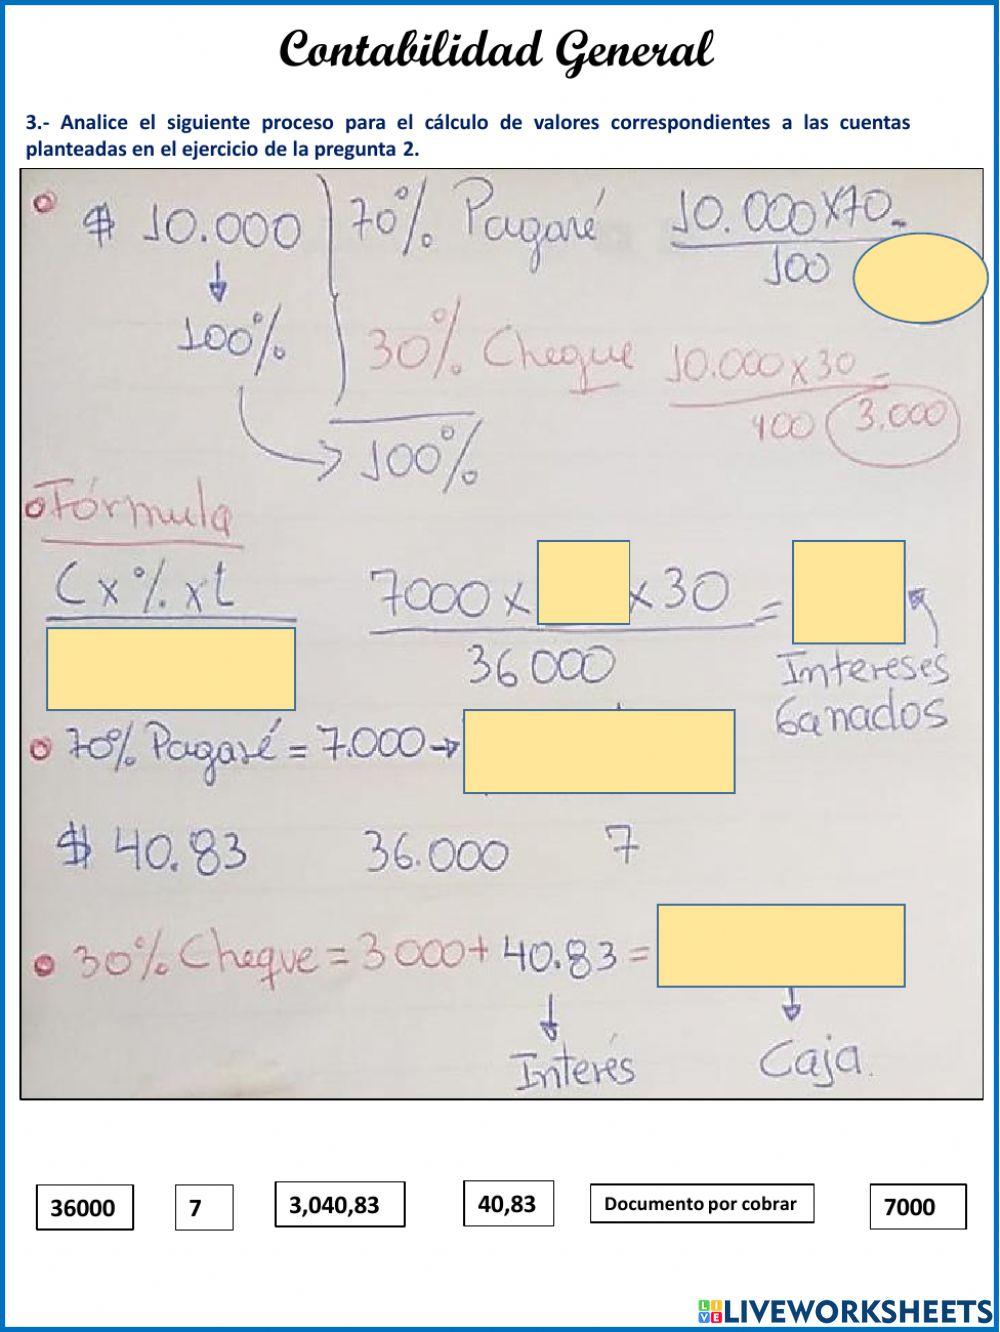 Contabilidad General
3.- Analice el siguiente proceso para el cálculo de valores correspondientes a las cuentas
planteadas en el ejercicio de la pregunta 2.
$ 10.000 70% Pagaré 10.000x70=
100
100% 30% Cheque 10.000x30=
100 3.000
100%
Fórmula
C x % x t 7000 x x 30 =
36000 Intereses
Ganados
70% Pagaré = 7.000→
$ 40.83 36.000 7
30% Cheque = 3000+ 40.83 =
Interés Caja.
36000 7 3,040,83 40,83 Documento por cobrar 7000
LIVEWORKSHEETS